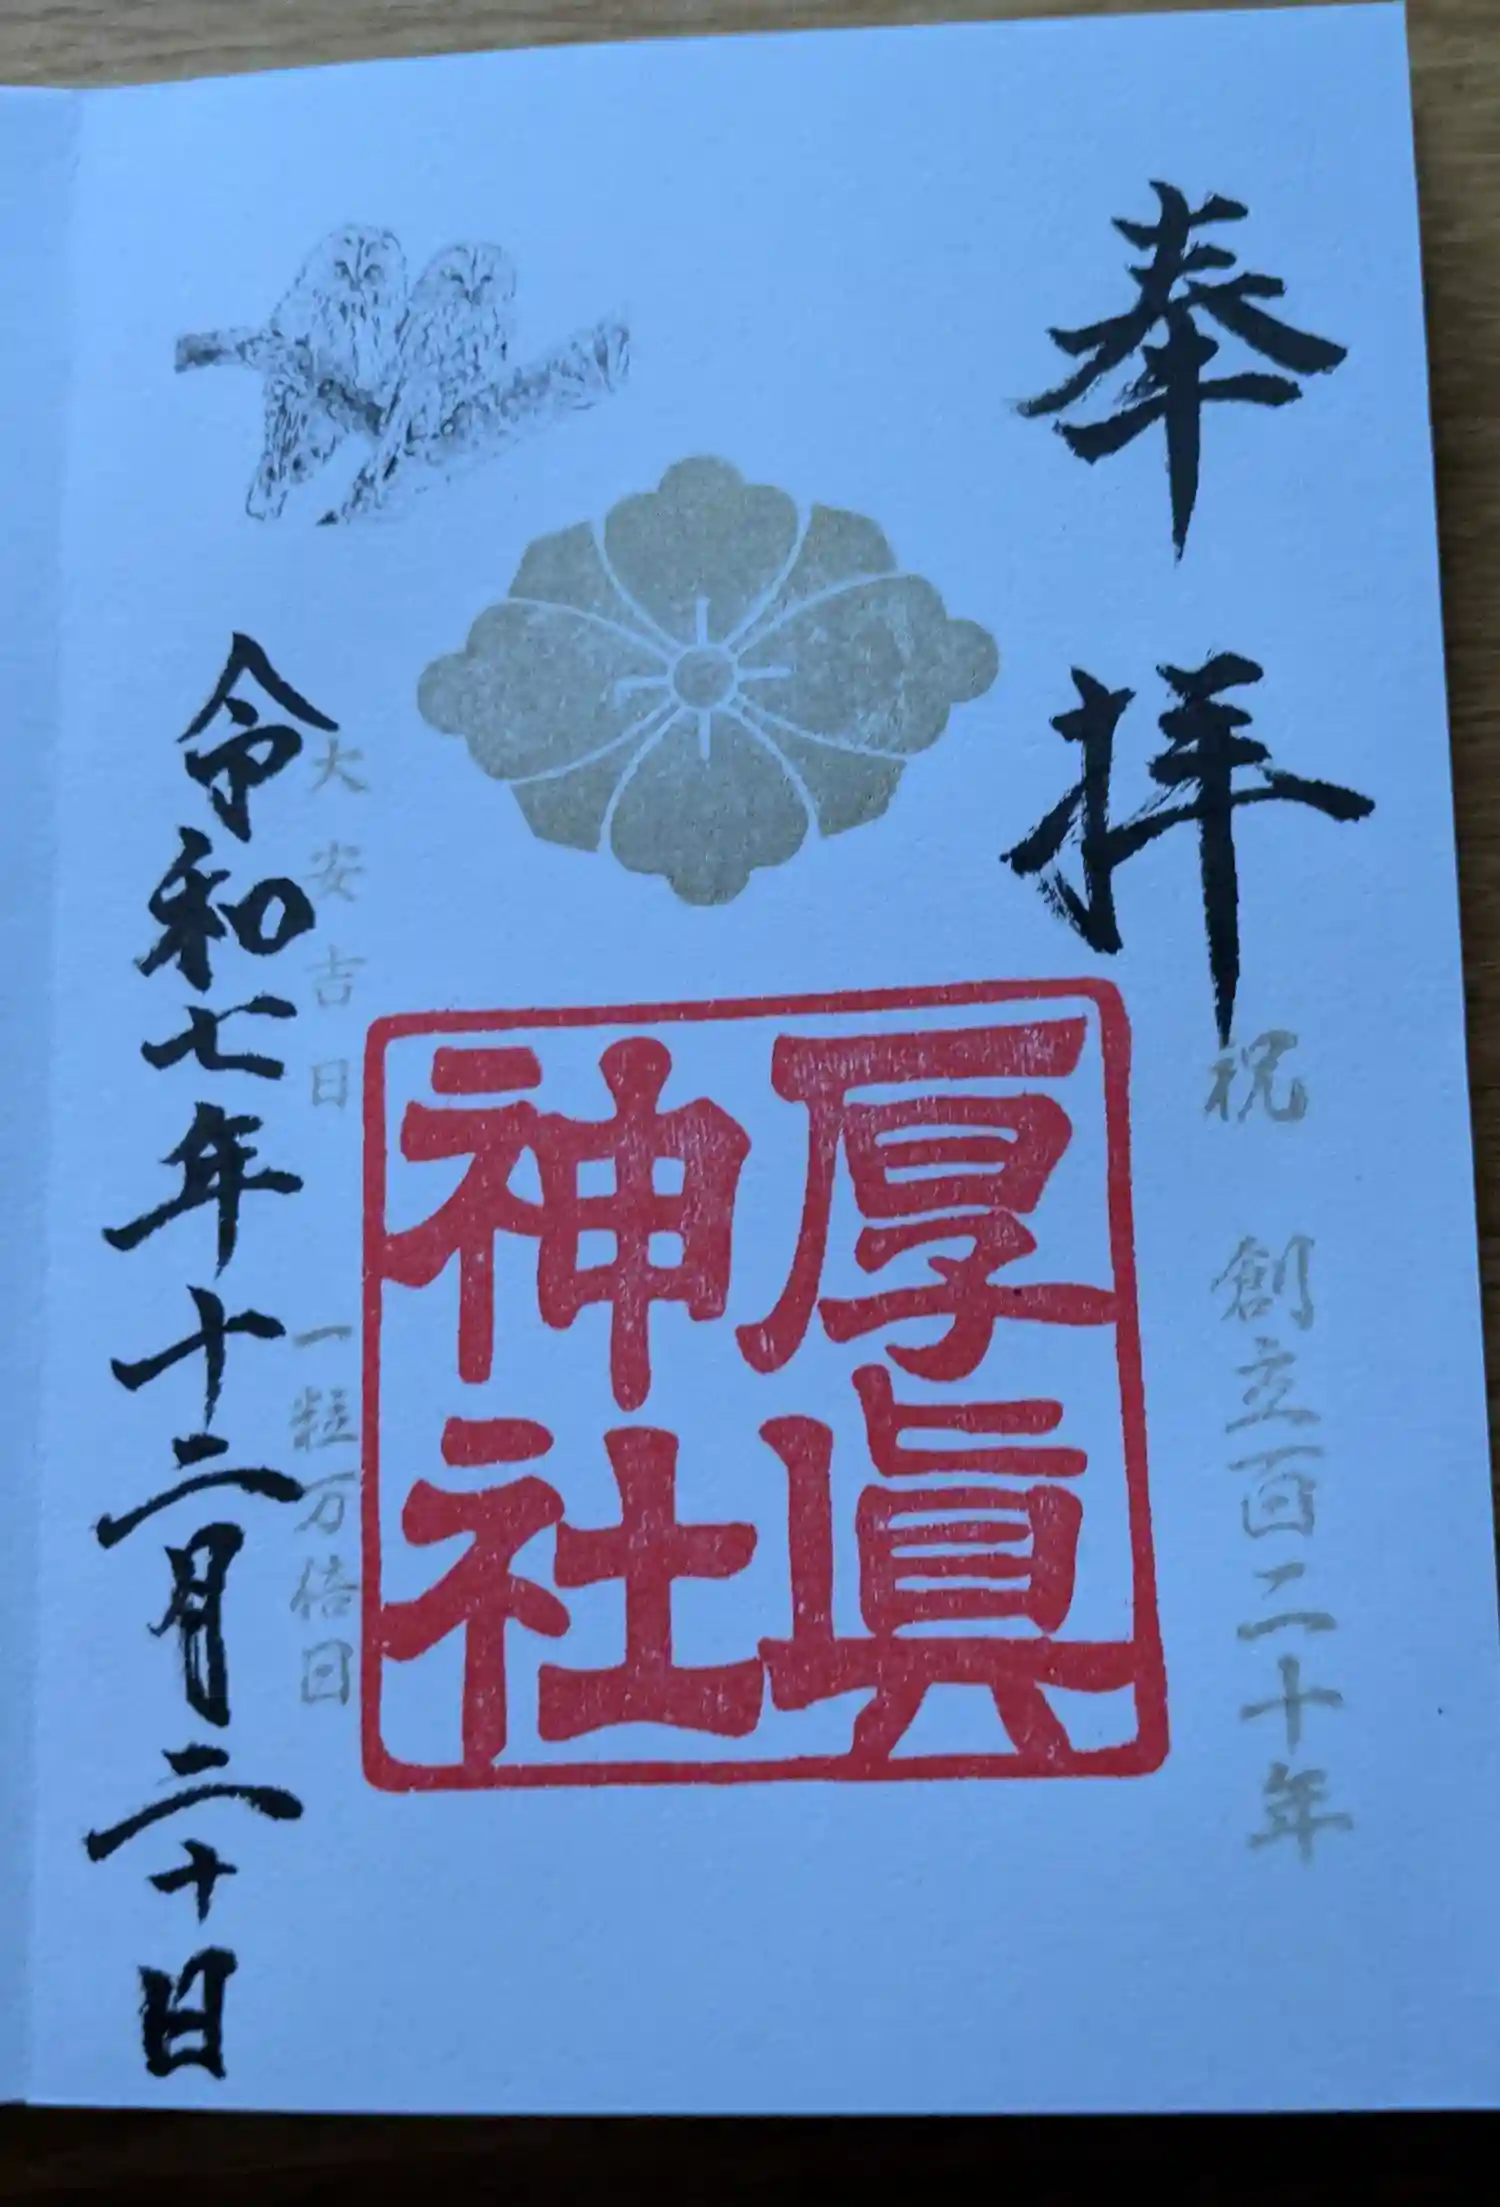 奉拝
祝 創立百二十年
厚眞
神社
大安吉日 一粒万倍日
令和七年十二月二十日